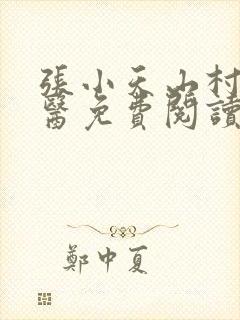 張小天山村
醫免費閱讀
鄭中夏